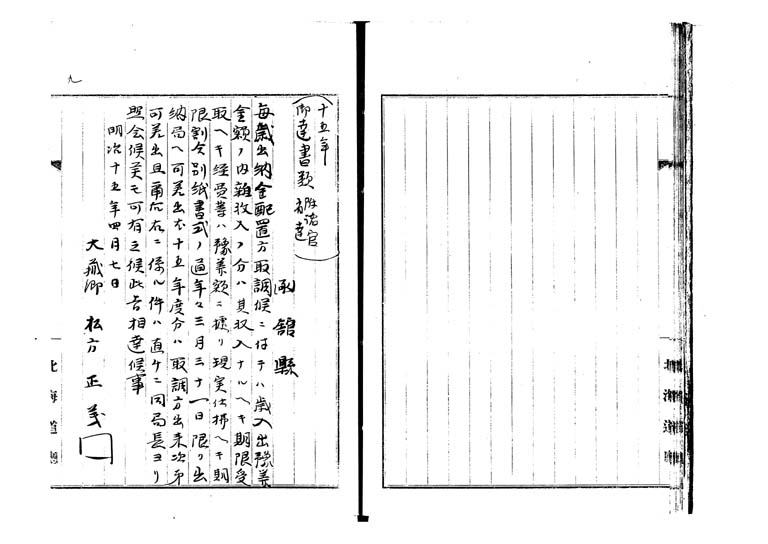 十五年
御達書類 附諸官
府達
函館縣
毎歳出納金配置方取調候ニ付テハ歳入出豫算
金額ノ内雜収入ノ分ハ其収入ナルヘキ期限受
取ヘキ経費等ハ豫算額ニ據リ現実仕拂ヘキ期
限割合別紙書式ノ通年々三月三十一日限リ出
納局ヘ可差出尤十五年度分ハ取調方出来次第
可差出且爾后右ニ係ル件ハ直ケニ同局長ヨリ
照会候美モ可有之候此旨相達候事
明治十五年四月七日
大藏卿 松方正義
北海道
北海道